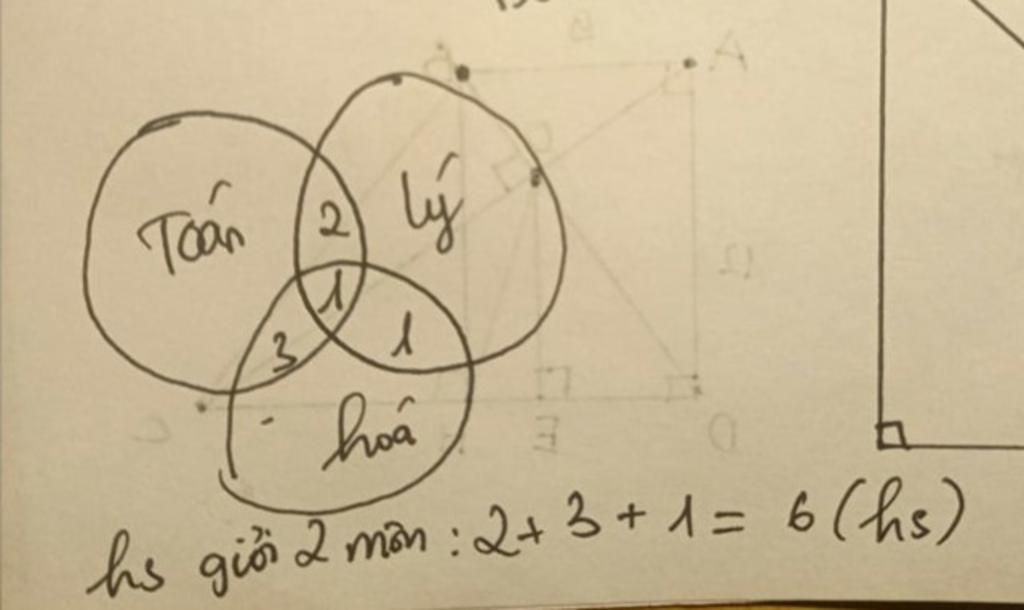 Toán 2 lý
1
3 1
hoá
hs giỏi 2 môn : 2 + 3 + 1 = 6 (hs)